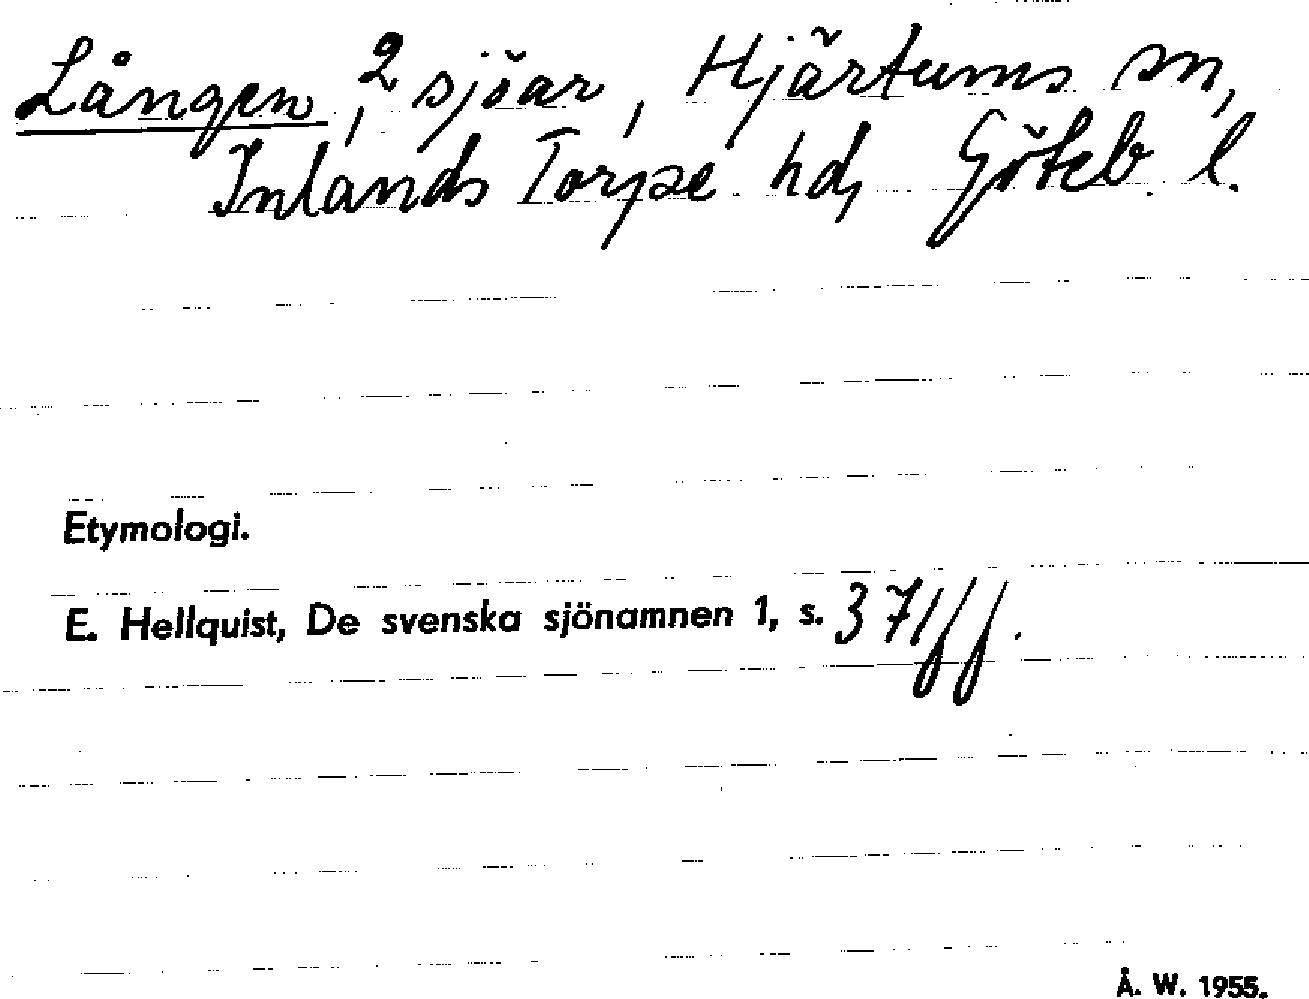 Lången, 2 sjöar, Hjärtums sn,
Inlands Torpe hd, Göteb. l.
Etymologi.
E. Hellquist, De svenska sjönamnen 1, s. 371 ff.
Å. W. 1955.